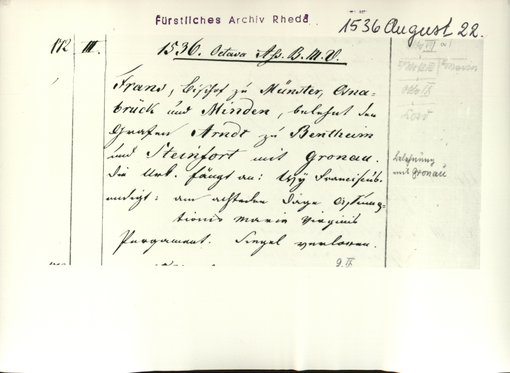 Fürstliches Archiv Rheda
1536 August 22.
172 III. 1536. Octava Ass. B. M. V.
Franz, Bischof zu Münster, Osna-
brück und Minden, belehnt den
Grafen Arndt zu Bentheim
und Steinfort mit Gronau.
Die Urk. fängt an: Wy Franciscus
endigt: am achteden Dage Assump-
tionis Marie Virginis
Pergament. Siegel verloren.
Belehnung
mit Gronau